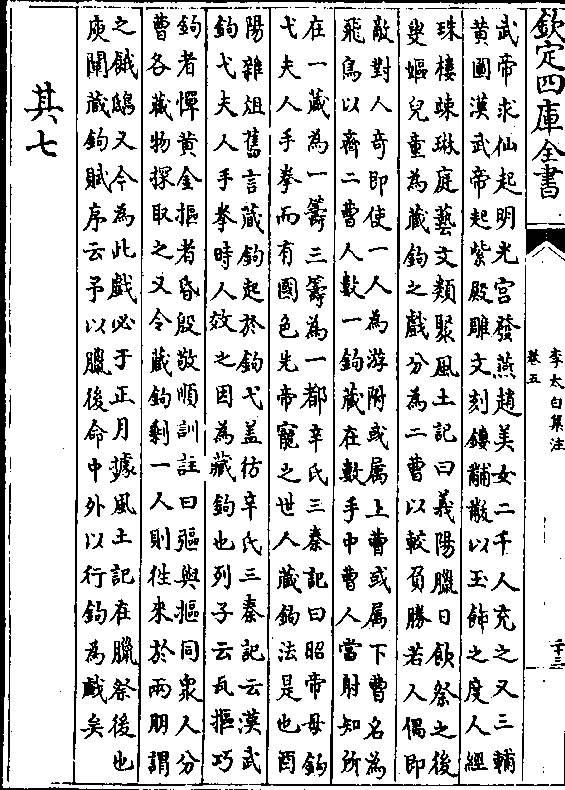 欽定四庫全書
李太白集注
卷五
二十三
武帝求仙起明光宮發燕趙美女二千人充之又三輔
黄圖漢武帝起紫殿雕文刻鏤黼黻以玉飾之度人經
珠樓竦琳庭藝文類聚風土記曰義陽臘日飲祭之後
叟嫗兒童為藏鉤之戲分為二曹以較負勝若人偶即
敵對人奇即使一人為游附或属上曹或属下曹名為
飛鳥以齊二曹人數一鉤藏在數手中曹人當射知所
在一藏為一籌三籌為一都辛氏三秦記曰昭帝母鉤
弋夫人手拳而有國色先帝寵之世人藏鉤法是也酉
陽雜俎舊言藏鉤起於鉤弋盖彷辛氏三秦記云漢武
鉤弋夫人手拳時人效之因為藏鉤也列子云瓦摳巧
鉤者憚黄金摳者昏殷敬順訓註曰彄與摳同衆人分
曹各藏物探取之又令藏鉤剩一人則徃來於兩朋謂
之餓鴟又今為此戲必于正月據風土記在臘祭後也
庾闡藏鉤賦序云予以臘後命中外以行鉤為戲矣
其七